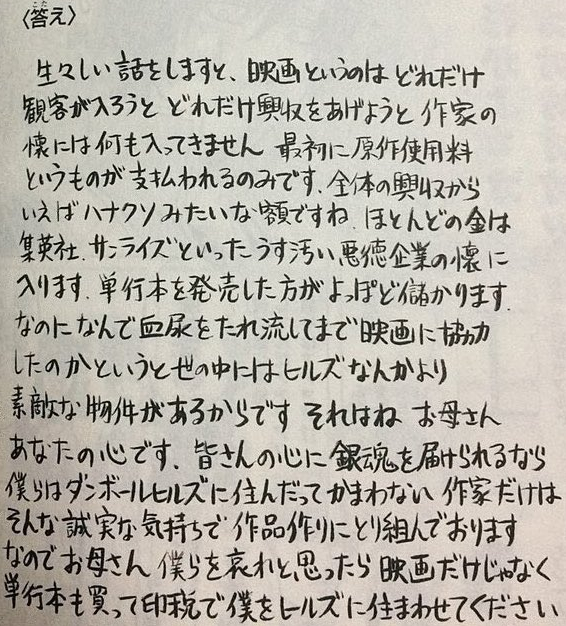 〈答え〉
生々しい話をしますと、映画というのは どれだけ
観客が入ろうと どれだけ興収をあげようと 作家の
懐には何も入ってきません 最初に原作使用料
というものが支払われるのみです、全体の興収から
いえばハナクソみたいな額ですね、ほとんどの金は
集英社、サンライズといったうす汚い悪徳企業の懐に
入ります、単行本を発売した方がよっぽど儲かります、
なのになんで血尿をたれ流してまで映画に協力
したのかというと世の中にはヒルズなんかより
素敵な物件があるからです それはね お母さん
あなたの心です、皆さんの心に 銀魂を届けられるなら
僕らはダンボールヒルズに住んだってかまわない 作家だけは
そんな誠実な気持ちで 作品作りにとり組んでおります
なのでお母さん 僕らを哀れと思ったら 映画だけじゃなく
単行本も買って印税で僕をヒルズに住まわせてください